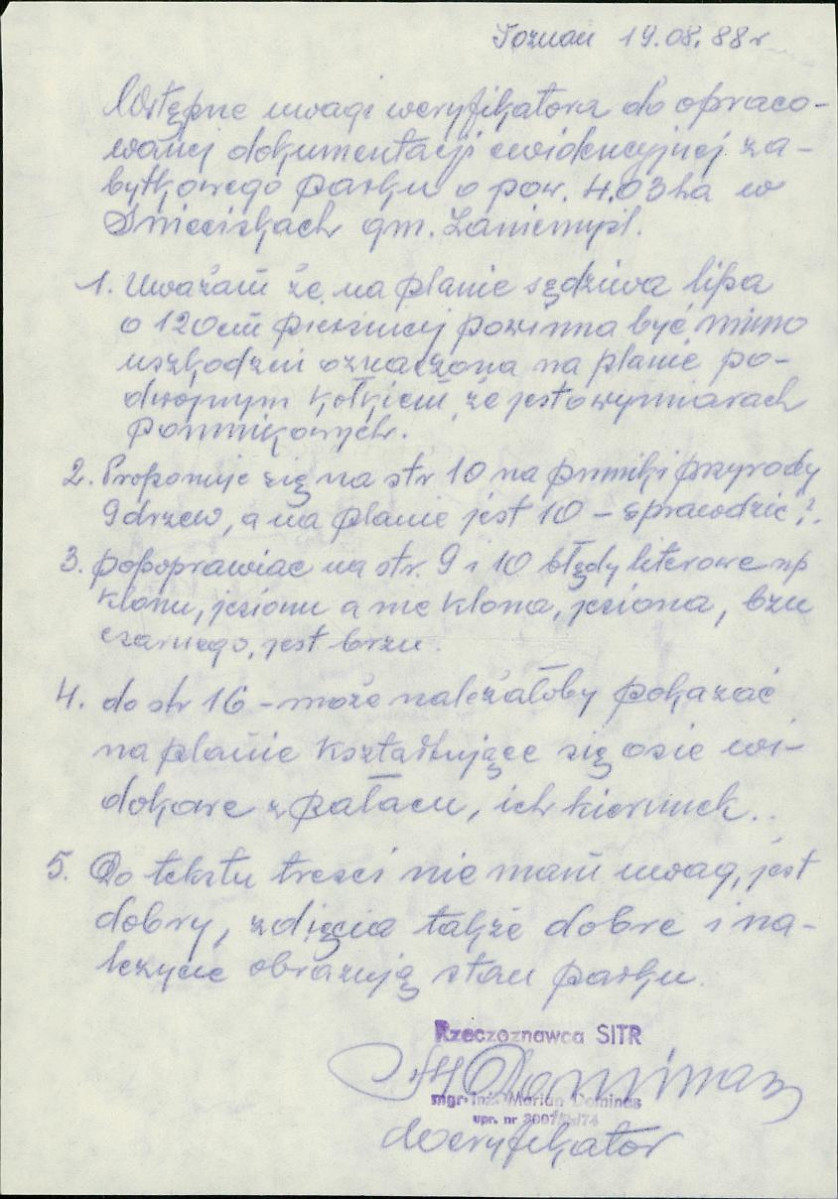 Poznań 19.08.88 r
Wstępne uwagi weryfikatora do opraco-
wanej dokumentacji ewidencyjnej za-
bytkowego parku o pow. 4.03 ha w
Śnieciskach gm. Zaniemyśl.
1. Uważam że na planie sędziwa lipa
o 120 cm pierśnicy powinna być mimo
uszkodzeń oznaczona na planie po-
dwojnym kółkiem, że jest o wymiarach
pomnikowych.
2. Proponuje się na str 10 na pmniki przyrody
9 drzew, a na planie jest 10 - sprawdzić?.
3. popoprawiać na str. 9 i 10 błędy literowe np
klonu, jesionu a nie klona, jesiona, bzu
czarnego, jest brzu.
4. do str 16 - może należałoby pokazać
na planie kształtujące się osie wi-
dokowe z pałacu, ich kierunek..
5. Do tekstu treści nie mam uwag, jest
dobry, zdięcia także dobre i na-
leżycie obrazują stan parku.
Rzeczoznawca SITR
mgr inż. Marian Dominas
upr. nr
Weryfikator